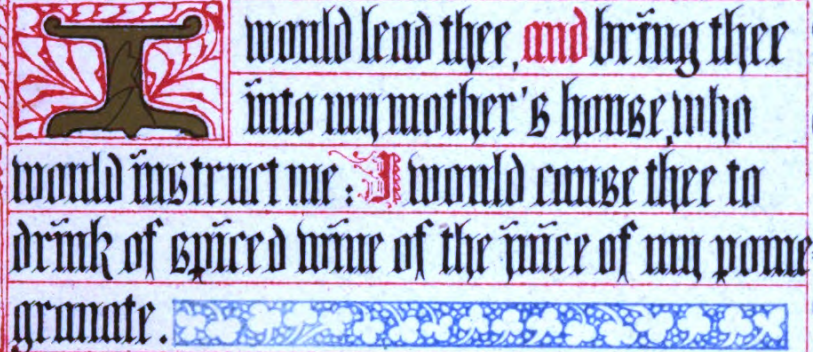 I would lead thee, and bring thee
into my mother's house, who
would instruct me: I would cause thee to
drink of spiced wine of the juice of my pome-
granate.